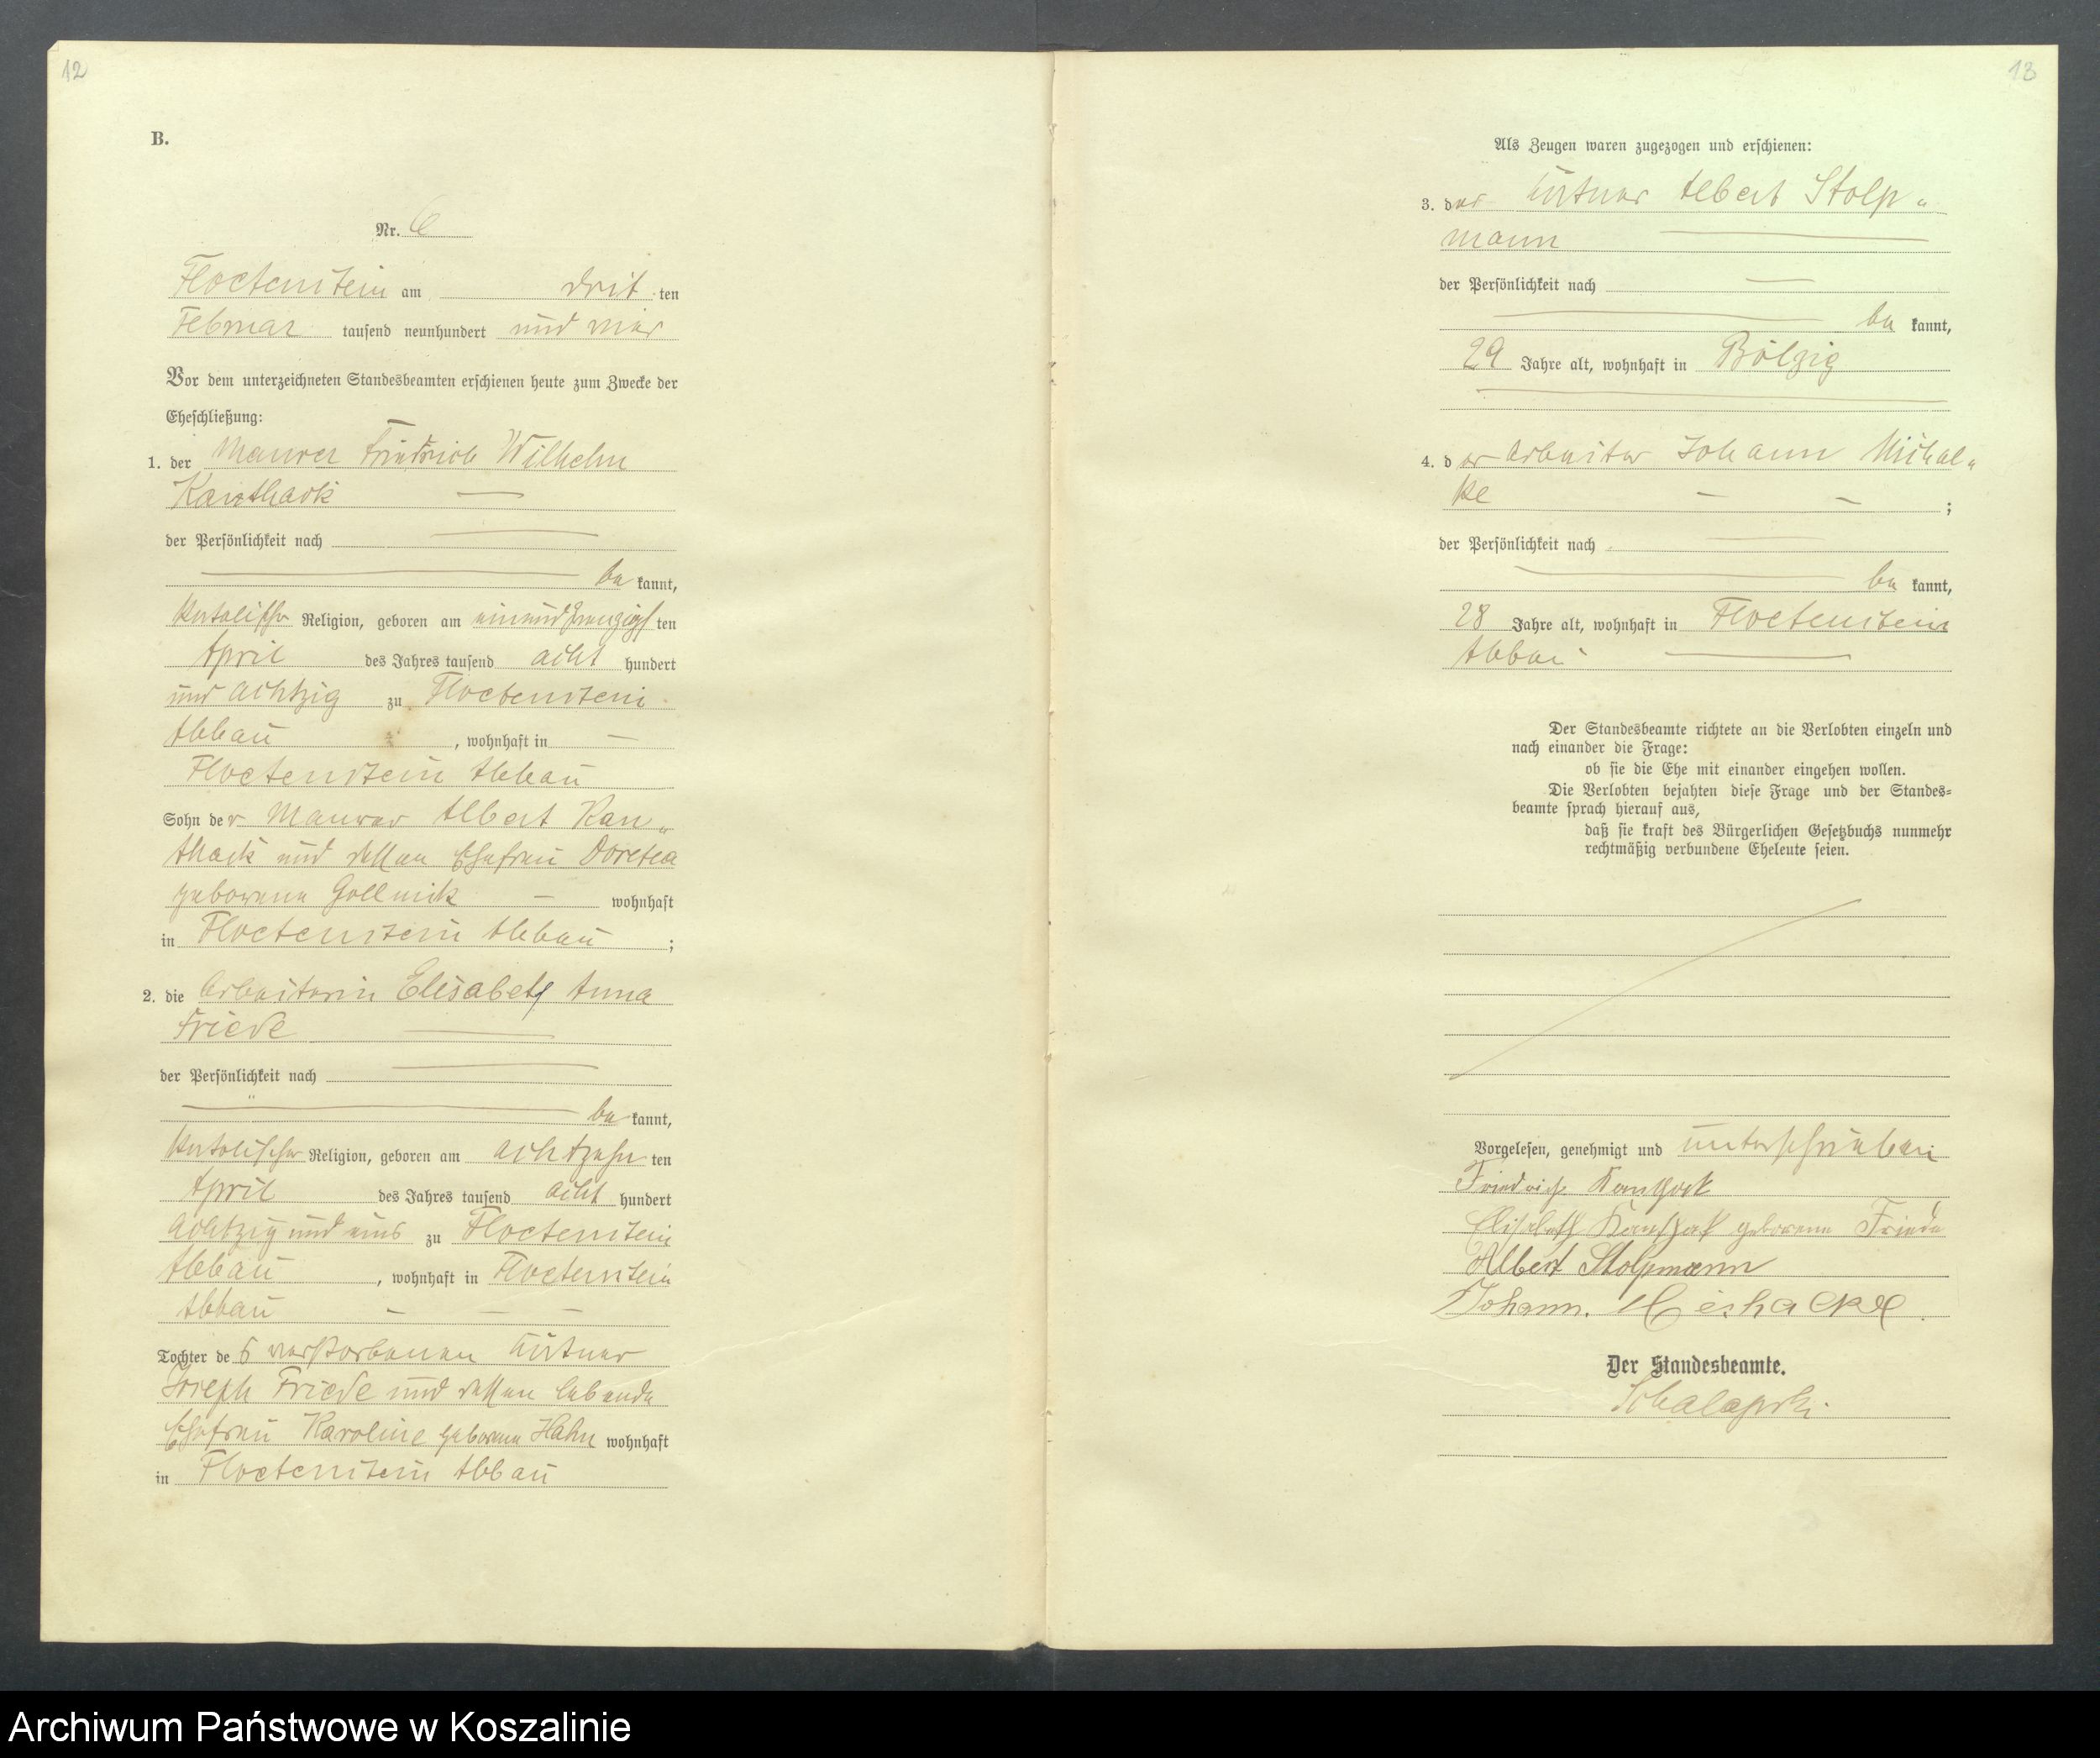 12
B.
Nr. 6
Floetenstein am drit ten
Februar tausend neunhundert und vier
Vor dem unterzeichneten Standesbeamten erschienen heute zum Zwecke der
Eheschließung:
1. der Maurer Friedrich Wilhelm
Kanthack —
der Persönlichkeit nach —
— be kannt,
katolischer Religion, geboren am einundzwanzigs ten
April des Jahres tausend acht hundert
und achtzig zu Floetenstein
Abbau , wohnhaft in —
Floetenstein Abbau
Sohn der Maurer Albert Kan„
thack und dessen Ehefrau Doretea
geborene Gollnick — wohnhaft
in Floetenstein Abbau ;
2. die Arbeiterin Elisabeth Anna
Friede —
der Persönlichkeit nach —
— be kannt,
katolischer Religion, geboren am achtzehn ten
April des Jahres tausend acht hundert
achtzig und eins zu Floetenstein
Abbau , wohnhaft in Floetenstein
Abbau — — —
Tochter de s verstorbenen
Joseph Friede und dessen lebende
Ehefrau Karoline geborene Hahn wohnhaft
in Floetenstein Abbau
13
Als Zeugen waren zugezogen und erschienen:
3. der Albert Stolp„
mann —
der Persönlichkeit nach —
— be kannt,
29 Jahre alt, wohnhaft in Bölzig
—
4. d er Arbeiter Johann Michal„
ke — — ;
der Persönlichkeit nach —
— be kannt,
28 Jahre alt, wohnhaft in Floetenstein
Abbau —
Der Standesbeamte richtete an die Verlobten einzeln und
nach einander die Frage:
ob sie die Ehe mit einander eingehen wollen.
Die Verlobten bejahten diese Frage und der Standes=
beamte sprach hierauf aus,
daß sie kraft des Bürgerlichen Gesetzbuchs nunmehr
rechtmäßig verbundene Eheleute seien.
Vorgelesen, genehmigt und unterschrieben
Friedrich Kanthack
Elisabeth Kanthack geborene Friede
Albert Stolpmann
Johann.
Der Standesbeamte.
Archiwum Państwowe w Koszalinie